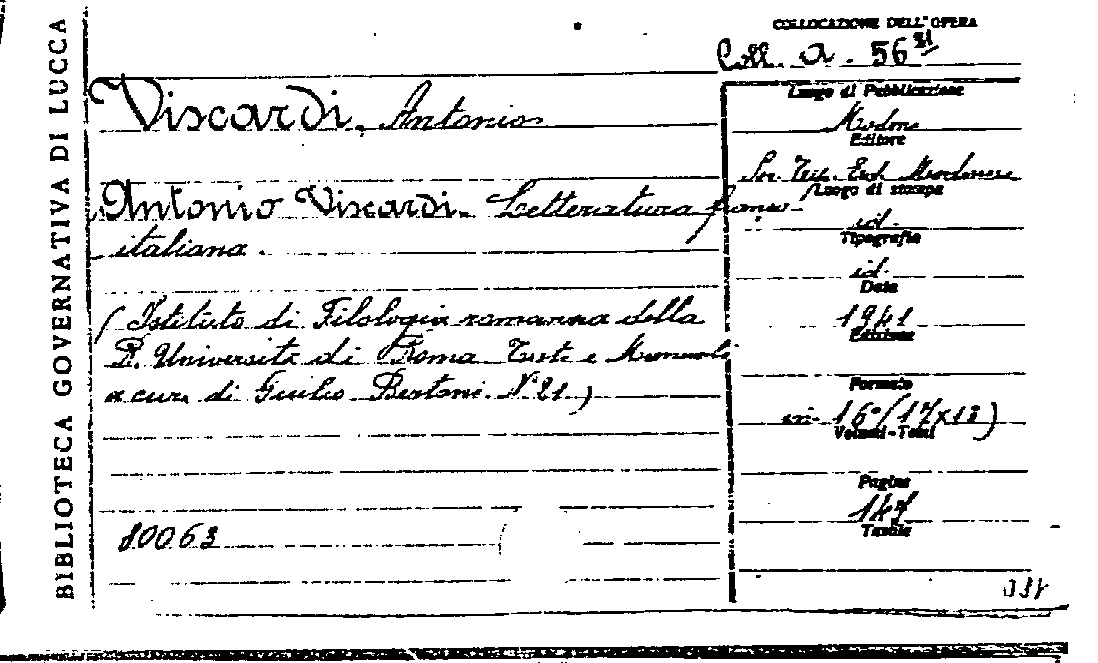 BIBLIOTECA GOVERNATIVA DI LUCCA
COLLOCAZIONE DELL'OPERA
Coll. A. 56 21
Viscardi, Antonio
Antonio Viscardi. Letteratura franco-
italiana.
(Istituto di Filologia romanza della
R. Università di Roma Testi e Manuali
a cura di Giulio Bertoni. N° 21)
80063
Luogo di Pubblicazione
Modena
Editore
Soc. Tip. Ed. Modenese
Luogo di stampa
id.
Tipografia
id.
Data
1941
Edizione
Formato
in 16° (17x12)
Volumi - Tomi
Pagine
Tavole